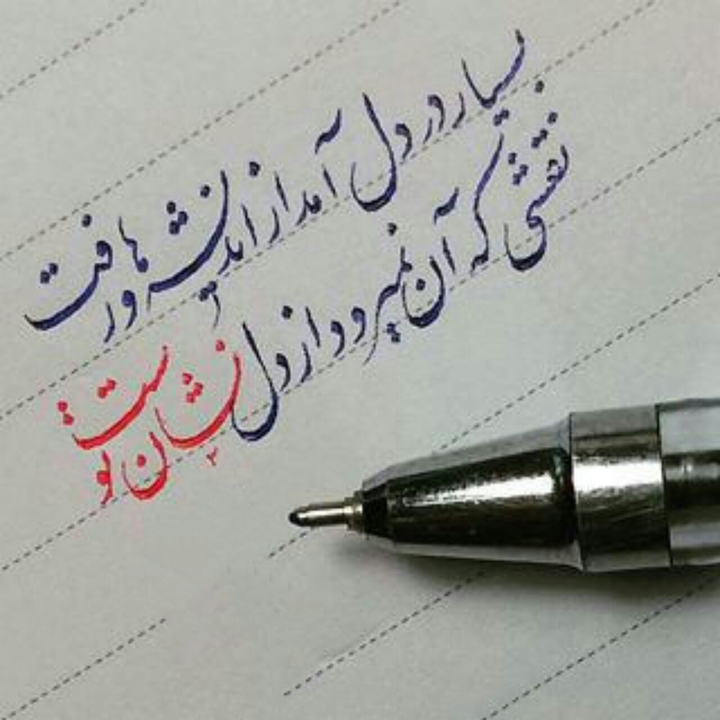 بسیار در دل آمد از اندیشه‌ها و رفت
نقشی که آن نمیرود از دل نشان توست